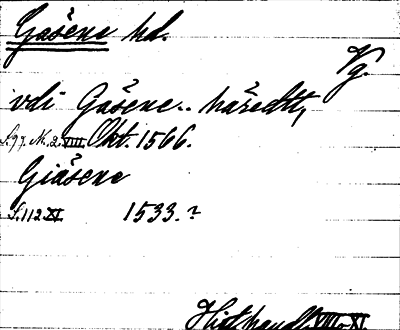 Gåsene hd.
Vg.
vdi Gåsene.. häredtt,
S. 97. N. 2. VIII. Okt. 1566.
Giåsene
S. 112. XI. 1533. ?
Hist. handl. VIII. XI.